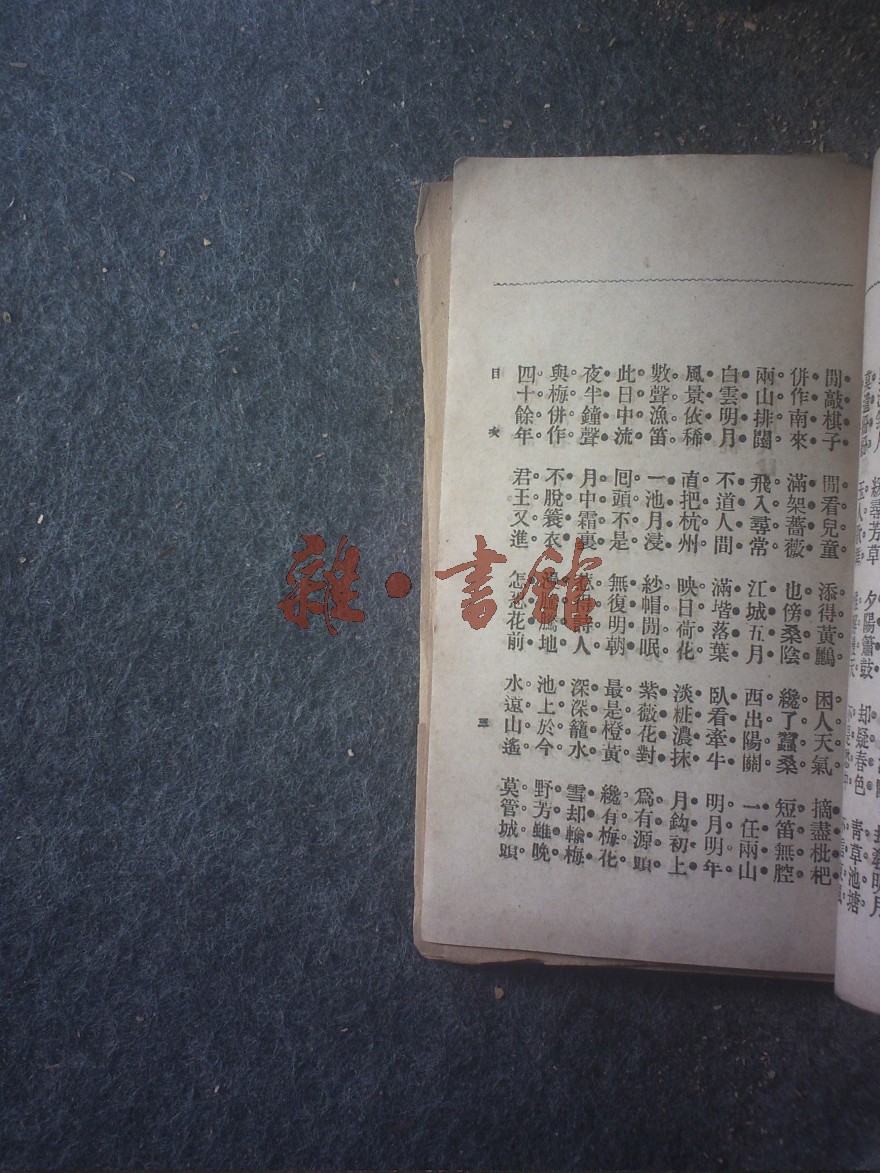 緩尋芳草 夕陽簫鼓 却疑春色 青草池塘
閒敲棋子 閒看兒童 添得黃鸝 困人天氣 摘盡枇杷
併作南來 滿架薔薇 也傍桑陰 纔了蠶桑 短笛無腔
兩山排闥 飛入尋常 江城五月 西出陽關 一任兩山
白雲明月 不道人間 滿堦落葉 臥看牽牛 明月明年
風景依稀 直把杭州 映日荷花 淡粧濃抹 月鈎初上
數聲漁笛 一池月浸 紗帽閒眠 紫薇花對 爲有源頭
此日中流 囘頭不是 無復明朝 最是橙黃 纔有梅花
夜半鐘聲 月中霜裏 詩人 深深籠水 雪却輸梅
與梅併作 不脫簑衣 騰地 池上於今 野芳雖晚
四十餘年 君王又進 怎恐花前 水遠山遙 莫管城頭
目次 三
雜·書館